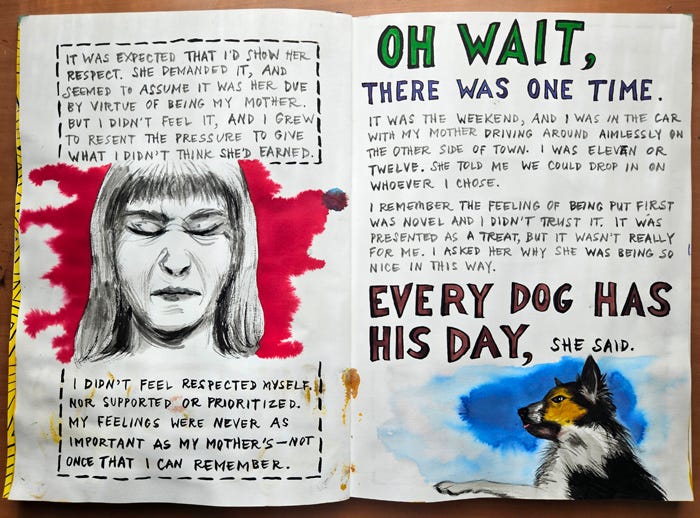 IT WAS EXPECTED THAT I'D SHOW HER
RESPECT. SHE DEMANDED IT, AND
SEEMED TO ASSUME IT WAS HER DUE
BY VIRTUE OF BEING MY MOTHER.
BUT I DIDN'T FEEL IT, AND I GREW
TO RESENT THE PRESSURE TO GIVE
WHAT I DIDN'T THINK SHE'D EARNED.
I DIDN'T FEEL RESPECTED MYSELF,
NOR SUPPORTED OR PRIORITIZED.
MY FEELINGS WERE NEVER AS
IMPORTANT AS MY MOTHER'S—NOT
ONCE THAT I CAN REMEMBER.
OH WAIT,
THERE WAS ONE TIME.
IT WAS THE WEEKEND, AND I WAS IN THE CAR
WITH MY MOTHER DRIVING AROUND AIMLESSLY ON
THE OTHER SIDE OF TOWN. I WAS ELEVEN OR
TWELVE. SHE TOLD ME WE COULD DROP IN ON
WHOEVER I CHOSE.
I REMEMBER THE FEELING OF BEING PUT FIRST
WAS NOVEL AND I DIDN'T TRUST IT. IT WAS
PRESENTED AS A TREAT, BUT IT WASN'T REALLY
FOR ME. I ASKED HER WHY SHE WAS BEING SO
NICE IN THIS WAY.
EVERY DOG HAS
HIS DAY, SHE SAID.